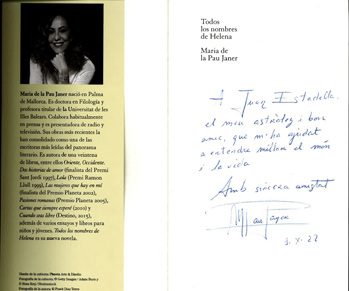 María de la Pau Janer nació en Palma
de Mallorca. Es doctora en Filología y
profesora titular de la Universitat de les
Illes Balears. Colabora habitualmente
en prensa y es presentadora de radio y
televisión. Sus obras más recientes la
han consolidado como una de las
escritoras más leídas del panorama
literario. Es autora de una veintena
de libros, entre ellos Oriente, Occidente.
Dos historias de amor (finalista del Premi
Sant Jordi 1997), Lola (Premi Ramon
Llull 1999), Las mujeres que hay en mí
(finalista del Premio Planeta 2002),
Pasiones romanas (Premio Planeta 2005),
Cartas que siempre esperé (2010) y
Cuando seas libre (Destino, 2015),
además de varios ensayos y libros para
niños y jóvenes. Todos los nombres de
Helena es su nueva novela.
Diseño de la cubierta: Planeta Arte & Diseño
Todos
los nombres
de Helena
Maria de
la Pau Janer
A Juan Estadella.
el meu astròleg i bon
amic, que m'ha ajudat
a entendre millor el món
i la vida
Amb sincera amistat